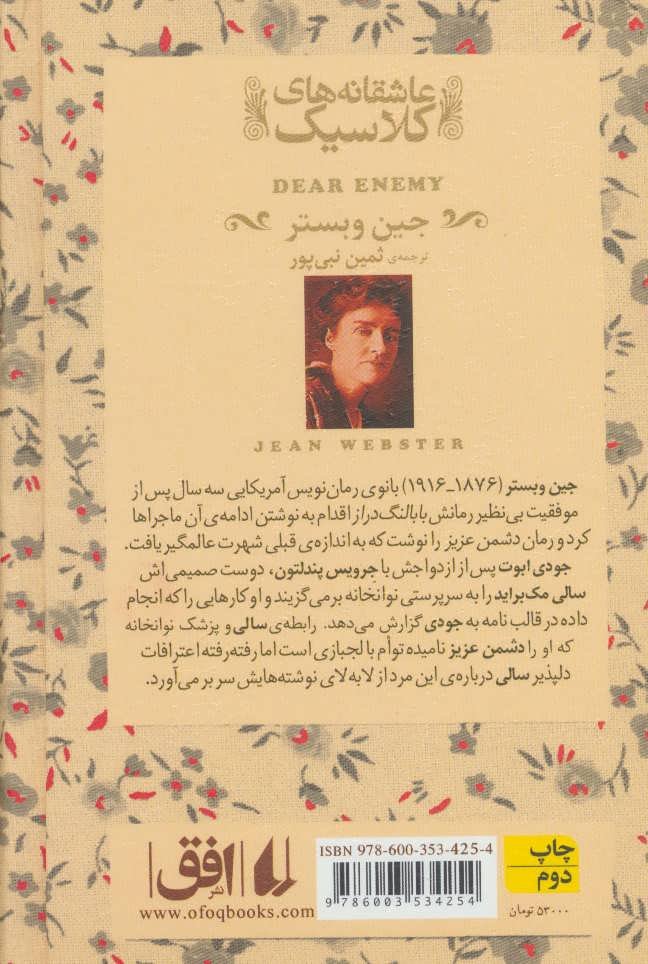 عاشقانه‌های
کلاسیک
DEAR ENEMY
جین وبستر
ترجمه‌ی ثمین نبی‌پور
JEAN WEBSTER
جین وبستر (۱۸۷۶_۱۹۱۶) بانوی رمان‌نویس آمریکایی سه سال پس از
موفقیت بی‌نظیر رمانش بابالنگ‌دراز اقدام به نوشتن ادامه‌ی آن ماجراها
کرد و رمان دشمن عزیز را نوشت که به اندازه‌ی قبلی شهرت عالمگیر یافت.
جودی ابوت پس از ازدواجش با جرویس پندلتون، دوست صمیمی‌اش
سالی مک‌براید را به سرپرستی نوانخانه برمی‌گزیند و او کارهایی را که انجام
داده در قالب نامه به جودی گزارش می‌دهد. رابطه‌ی سالی و پزشک نوانخانه
که او را دشمن عزیز نامیده توأم با لجبازی است اما رفته‌رفته اعترافات
دلپذیر سالی درباره‌ی این مرد از لابه‌لای نوشته‌هایش سر بر می‌آورد.
نشر افق
www.ofoqbooks.com
ISBN 978-600-353-425-4
9 786003 534254
چاپ
دوم
۵۳۰۰۰ تومان